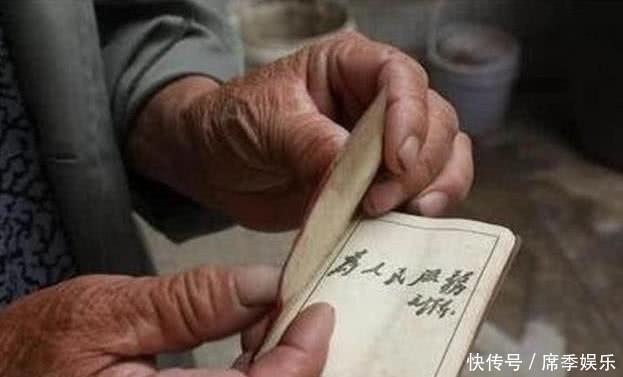 为人民服務
毛泽东
快传号 / 席季娱乐